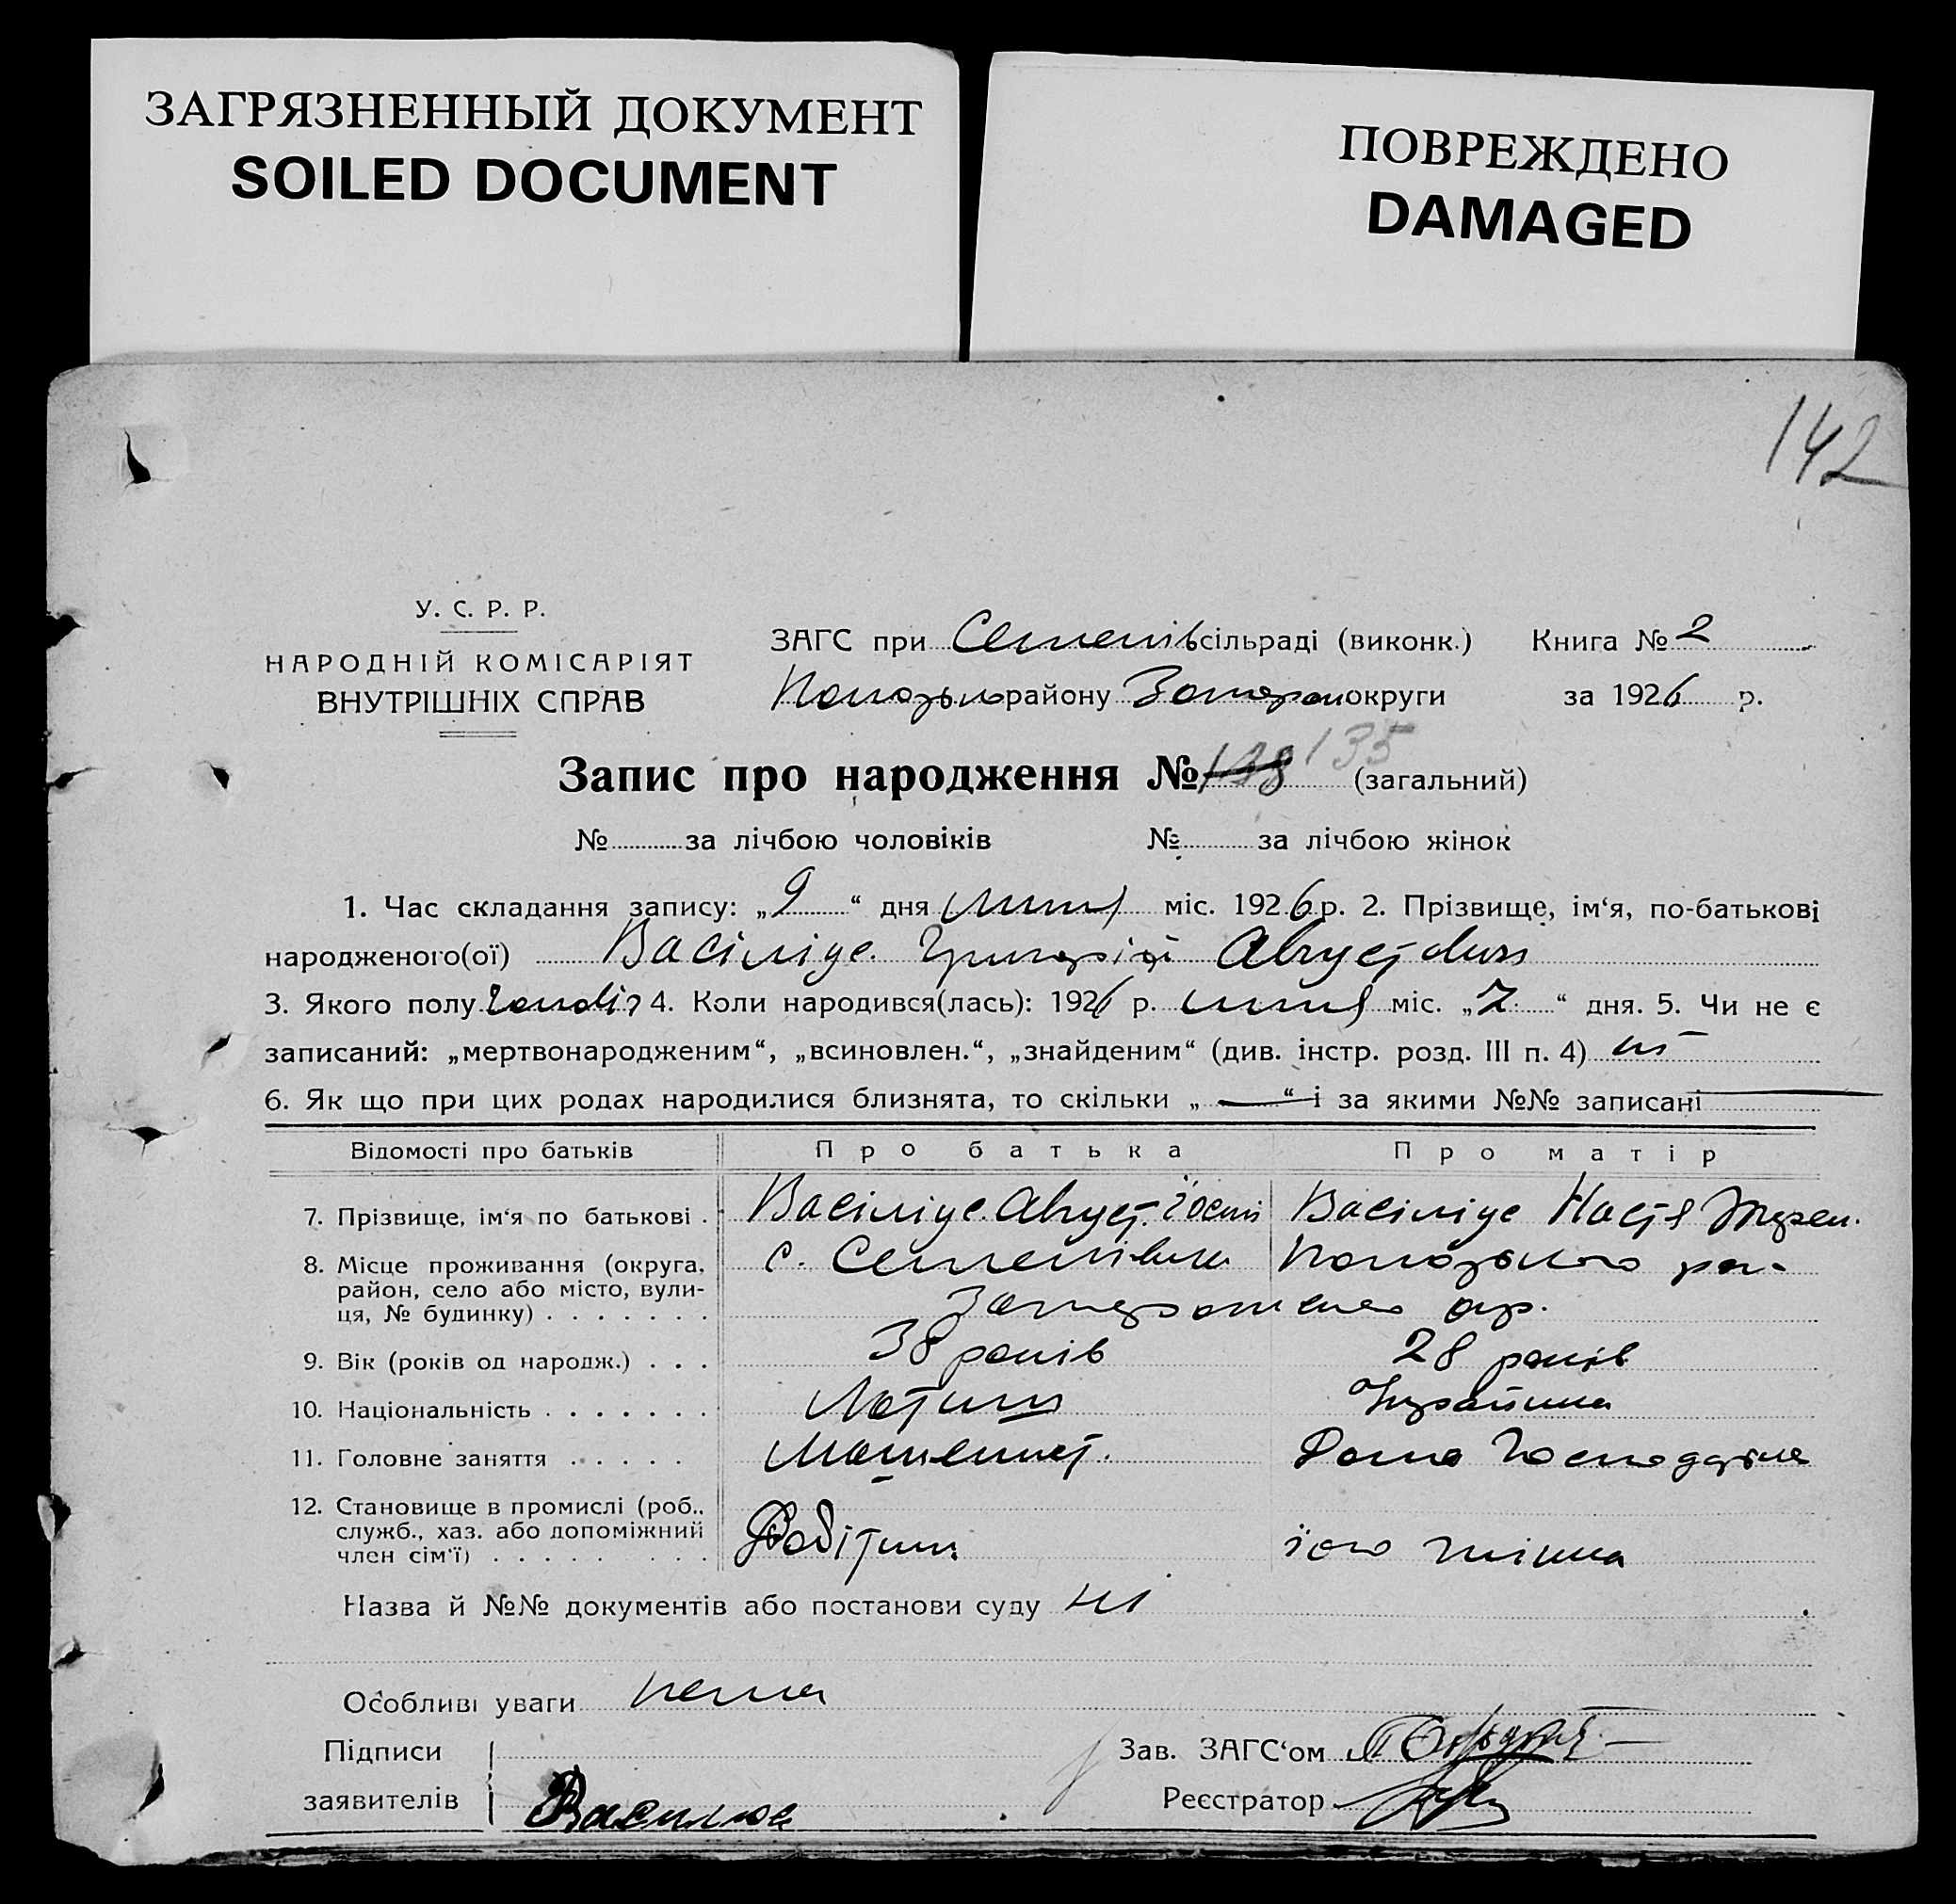 ЗАГРЯЗНЕННЫЙ ДОКУМЕНТ
SOILED DOCUMENT
ПОВРЕЖДЕНО
DAMAGED
142
У. С. Р. Р.
НАРОДНІЙ КОМІСАРІЯТ
ВНУТРІШНІХ СПРАВ
ЗАГС при Семенів сільраді (виконк.) Книга № 2
району округи за 1926 р.
Запис про народження № 135 (загальний)
№ за лічбою чоловіків № за лічбою жінок
1. Час складання запису: „9“ дня липня міс. 1926 р. 2. Прізвище, ім‘я, по-батькові
народженого(ої) Васіліус Григорій Августович
3. Якого полу 4. Коли народився(лась): 1926 р. липня міс. „7“ дня. 5. Чи не є
записаний: „мертвонародженим“, „всиновлен.“, „знайденим“ (див. інстр. розд. III п. 4) ні
6. Як що при цих родах народилися близнята, то скільки „—“ і за якими №№ записані
Відомості про батьків Про батька Про матір
7. Прізвище, ім‘я по батькові . Васіліус Август. Васіліус Настя
8. Місце проживання (округа, район, село або місто, вулиця, № будинку) . . . . . . . с. Семенівка
9. Вік (років од народж.) . . . 38 років 28 років
10. Національність . . . . . . . Латиш Українка
11. Головне заняття . . . . . Машиніст. Дома
12. Становище в промислі (роб., служб., хаз. або допоміжний член сім‘ї) . . . . . . . . Робітник його жінка
Назва й №№ документів або постанови суду ні
Особливі уваги нема
Підписи
заявителів Василюс
Зав. ЗАГС‘ом
Реєстратор